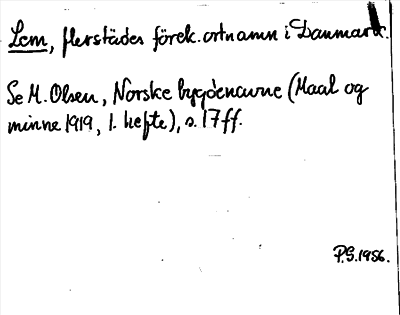 Lem, flerstädes förek. ortnamn i Danmark.
Se M. Olsen, Norske bygdenavne (Maal og
minne 1919, 1. hefte), s. 17 ff.
P.G. 1956.